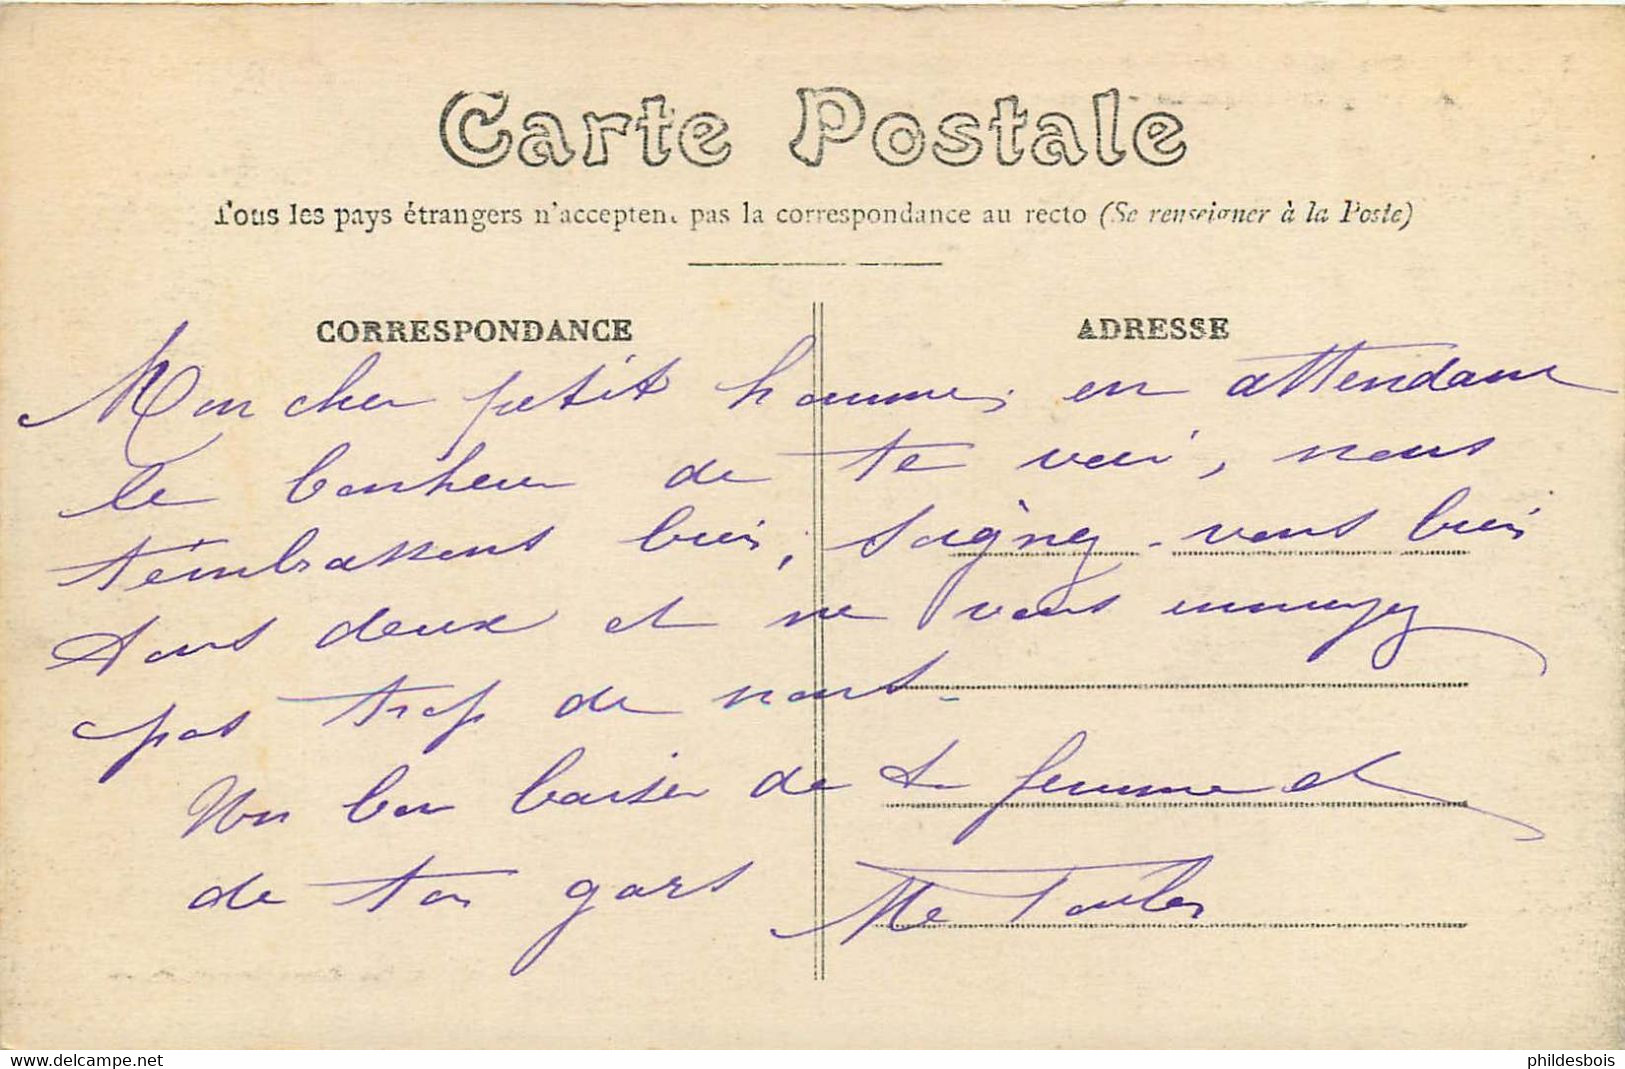 Carte Postale
Tous les pays étrangers n'acceptent pas la correspondance au recto (Se renseigner à la Poste)
CORRESPONDANCE
ADRESSE
Mon cher petit homme, en attendant
le bonheur de te voir, nous
t'embrassons bien, soignez-vous bien
tous deux et ne vous ennuyez
pas trop de nous.
Un bon baiser de ta femme et
de ton gars
www.delcampe.net
phildesbois